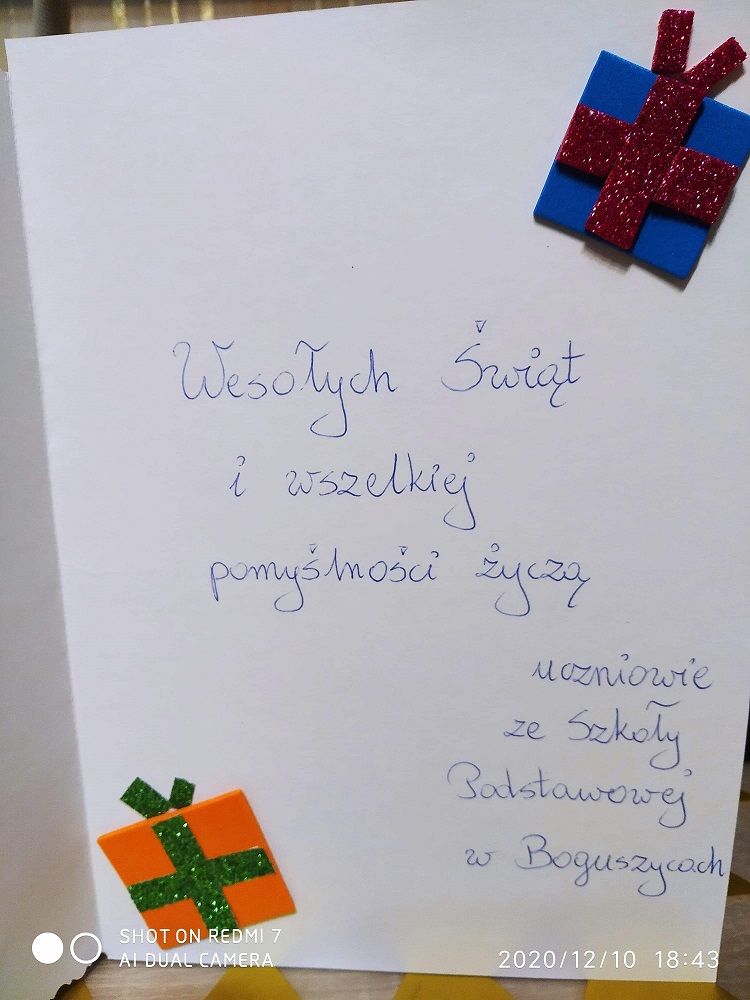 Wesołych Świąt
i wszelkiej
pomyślności życzą
uczniowie
ze Szkoły
Podstawowej
w Boguszycach
SHOT ON REDMI 7
AI DUAL CAMERA
2020/12/10 18:43